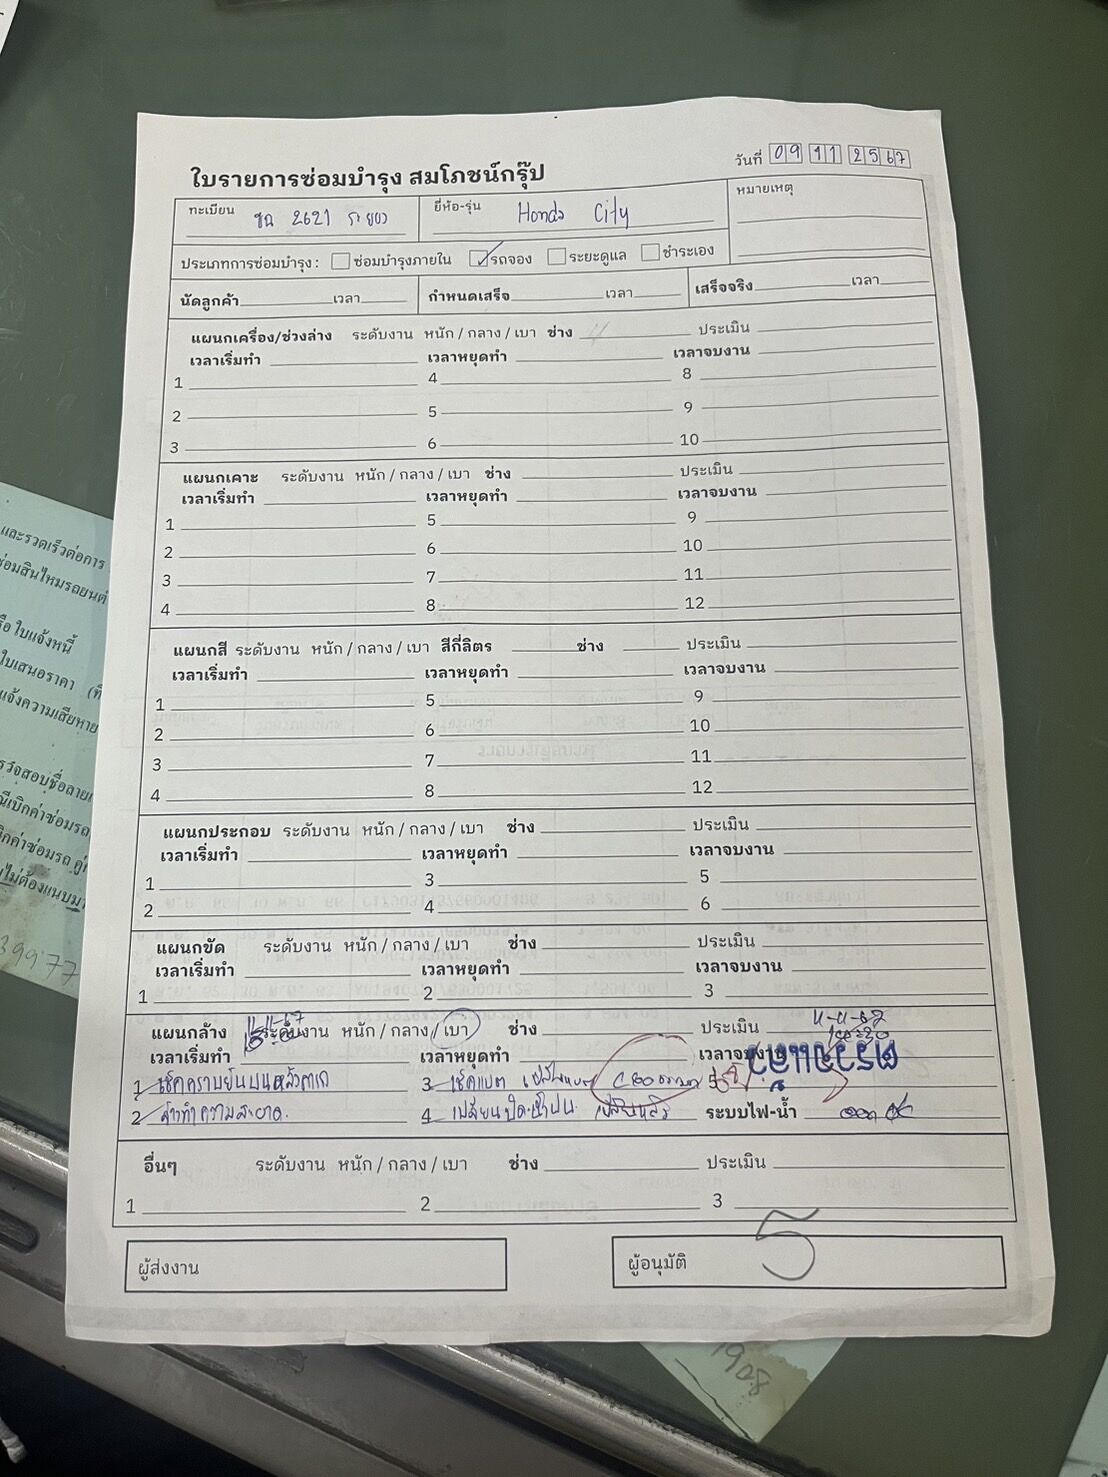 ใบรายการซ่อมบำรุง สมโภชน์กรุ๊ป
วันที่ 09 11 2567
ทะเบียน 2621 ระยอง ยี่ห้อ-รุ่น Honda City หมายเหตุ
ประเภทการซ่อมบำรุง : ซ่อมบำรุงภายใน รถจอง ระยะดูแล ชำระเอง
นัดลูกค้า เวลา กำหนดเสร็จ เวลา เสร็จจริง เวลา
แผนกเครื่อง/ช่วงล่าง ระดับงาน หนัก / กลาง / เบา ช่าง ประเมิน
เวลาเริ่มทำ เวลาหยุดทำ เวลาจบงาน
1 4 8
2 5 9
3 6 10
แผนกเคาะ ระดับงาน หนัก / กลาง / เบา ช่าง ประเมิน
เวลาเริ่มทำ เวลาหยุดทำ เวลาจบงาน
1 5 9
2 6 10
3 7 11
4 8 12
แผนกสี ระดับงาน หนัก / กลาง / เบา สีกี่ลิตร ช่าง ประเมิน
เวลาเริ่มทำ เวลาหยุดทำ เวลาจบงาน
1 5 9
2 6 10
3 7 11
4 8 12
แผนกประกอบ ระดับงาน หนัก / กลาง / เบา ช่าง ประเมิน
เวลาเริ่มทำ เวลาหยุดทำ เวลาจบงาน
1 3 5
2 4 6
แผนกขัด ระดับงาน หนัก / กลาง / เบา ช่าง ประเมิน
เวลาเริ่มทำ เวลาหยุดทำ เวลาจบงาน
1 2 3
แผนกล้าง ระดับงาน หนัก / กลาง / เบา ช่าง ประเมิน 11-11-67
เวลาเริ่มทำ เวลาหยุดทำ เวลาจบงาน
ตรวจแล้ว
1 เช็คคราบยางบนหลังคา 3 เช็คแบต 5
2 ล้างทำความสะอาด 4 เปลี่ยนปัดน้ำฝน ระบบไฟ-น้ำ
อื่นๆ ระดับงาน หนัก / กลาง / เบา ช่าง ประเมิน
1 2 3
ผู้ส่งงาน ผู้อนุมัติ
และรวดเร็วต่อการ
ซ่อมสินไหมรถยนต์
ใบแจ้งหนี้
ใบเสนอราคา
แจ้งความเสียหาย
ไม่ต้องแนบมา
39977
1908